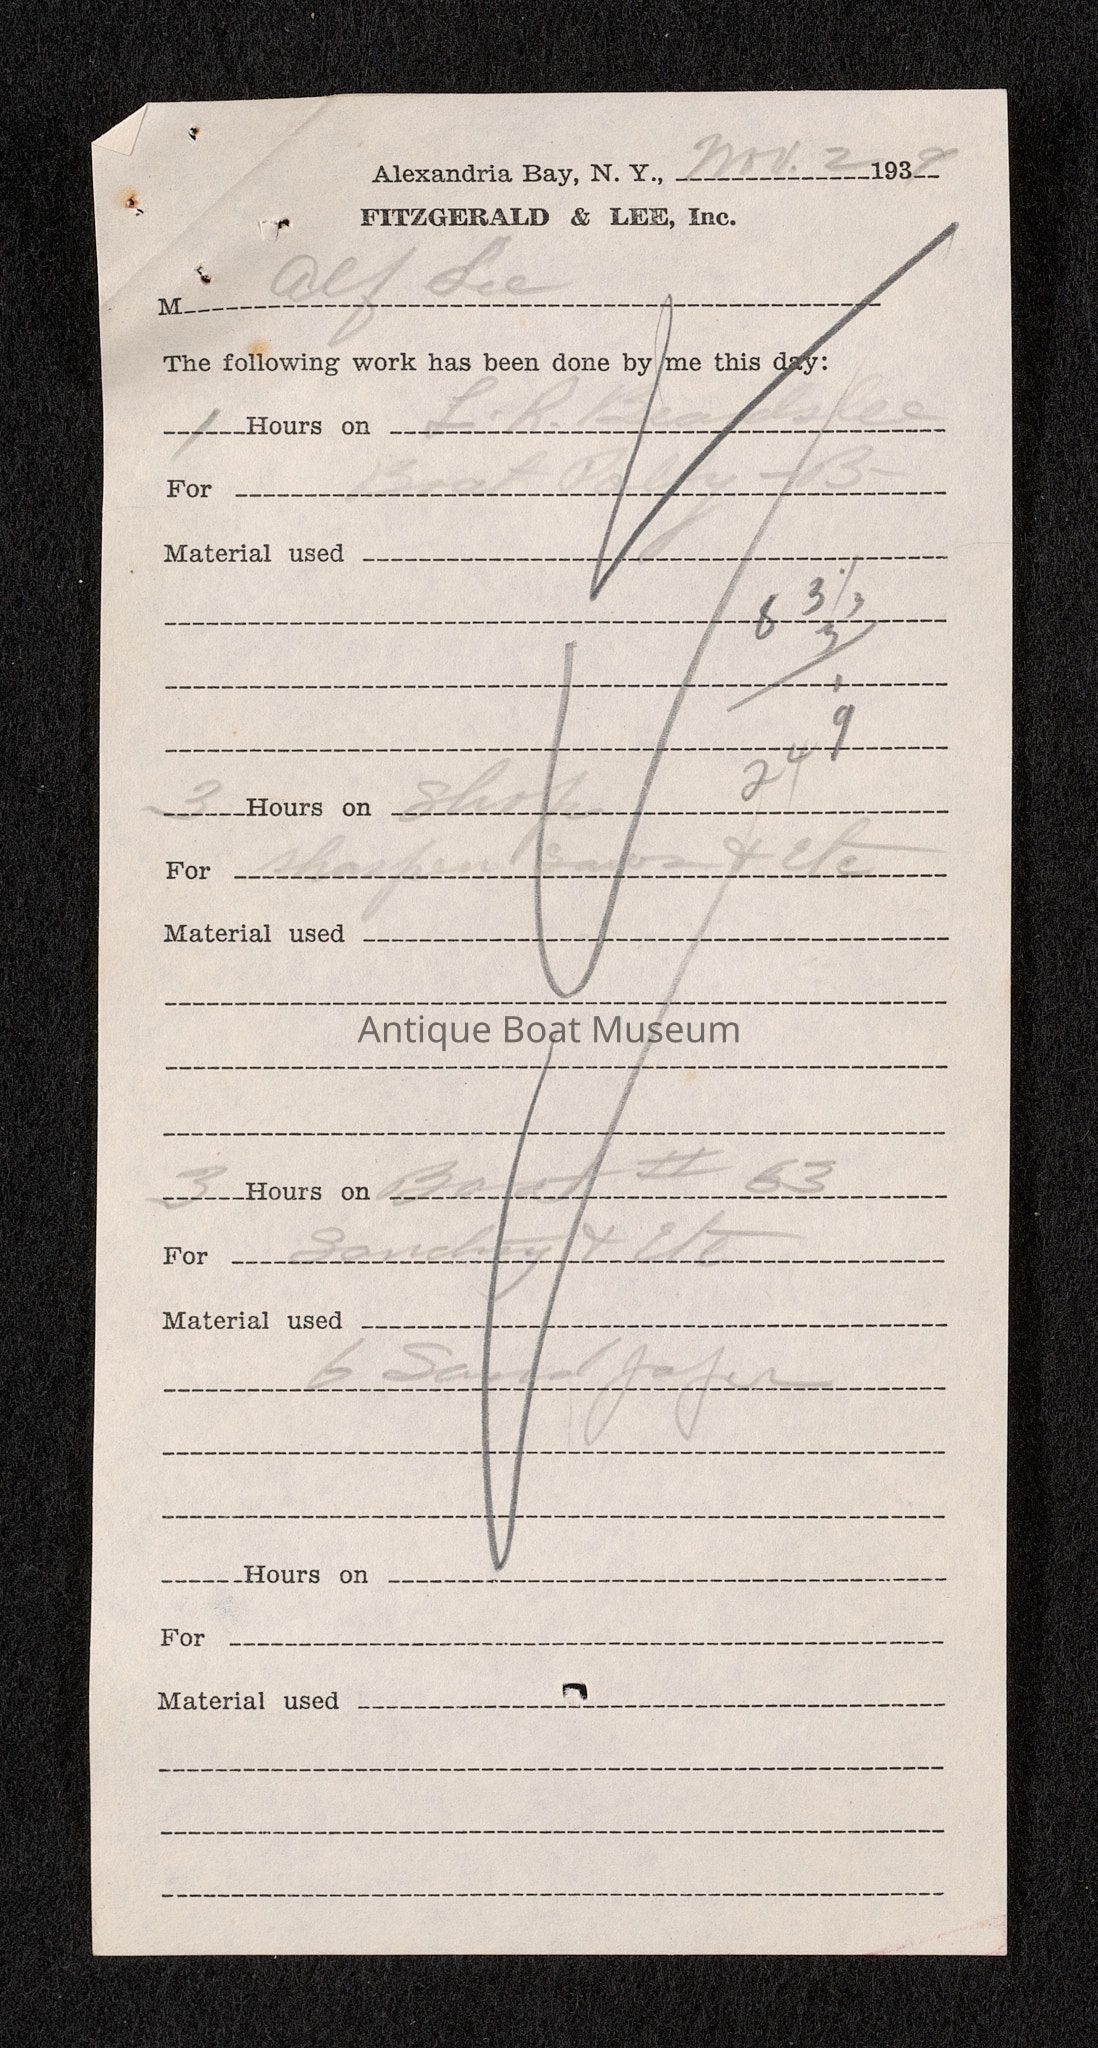 Alexandria Bay, N. Y., Nov. 2 1939
FITZGERALD & LEE, Inc.
M Alf Lee
The following work has been done by me this day:
1 Hours on L. R. Beardslee
For Boat -B-
Material used
8 3 1/3
3
9
24
3 Hours on Shop
For sharpen saws & Etc
Material used
Antique Boat Museum
3 Hours on Boat # 63
For Sanding & Etc
Material used
6 Sand paper
Hours on
For
Material used